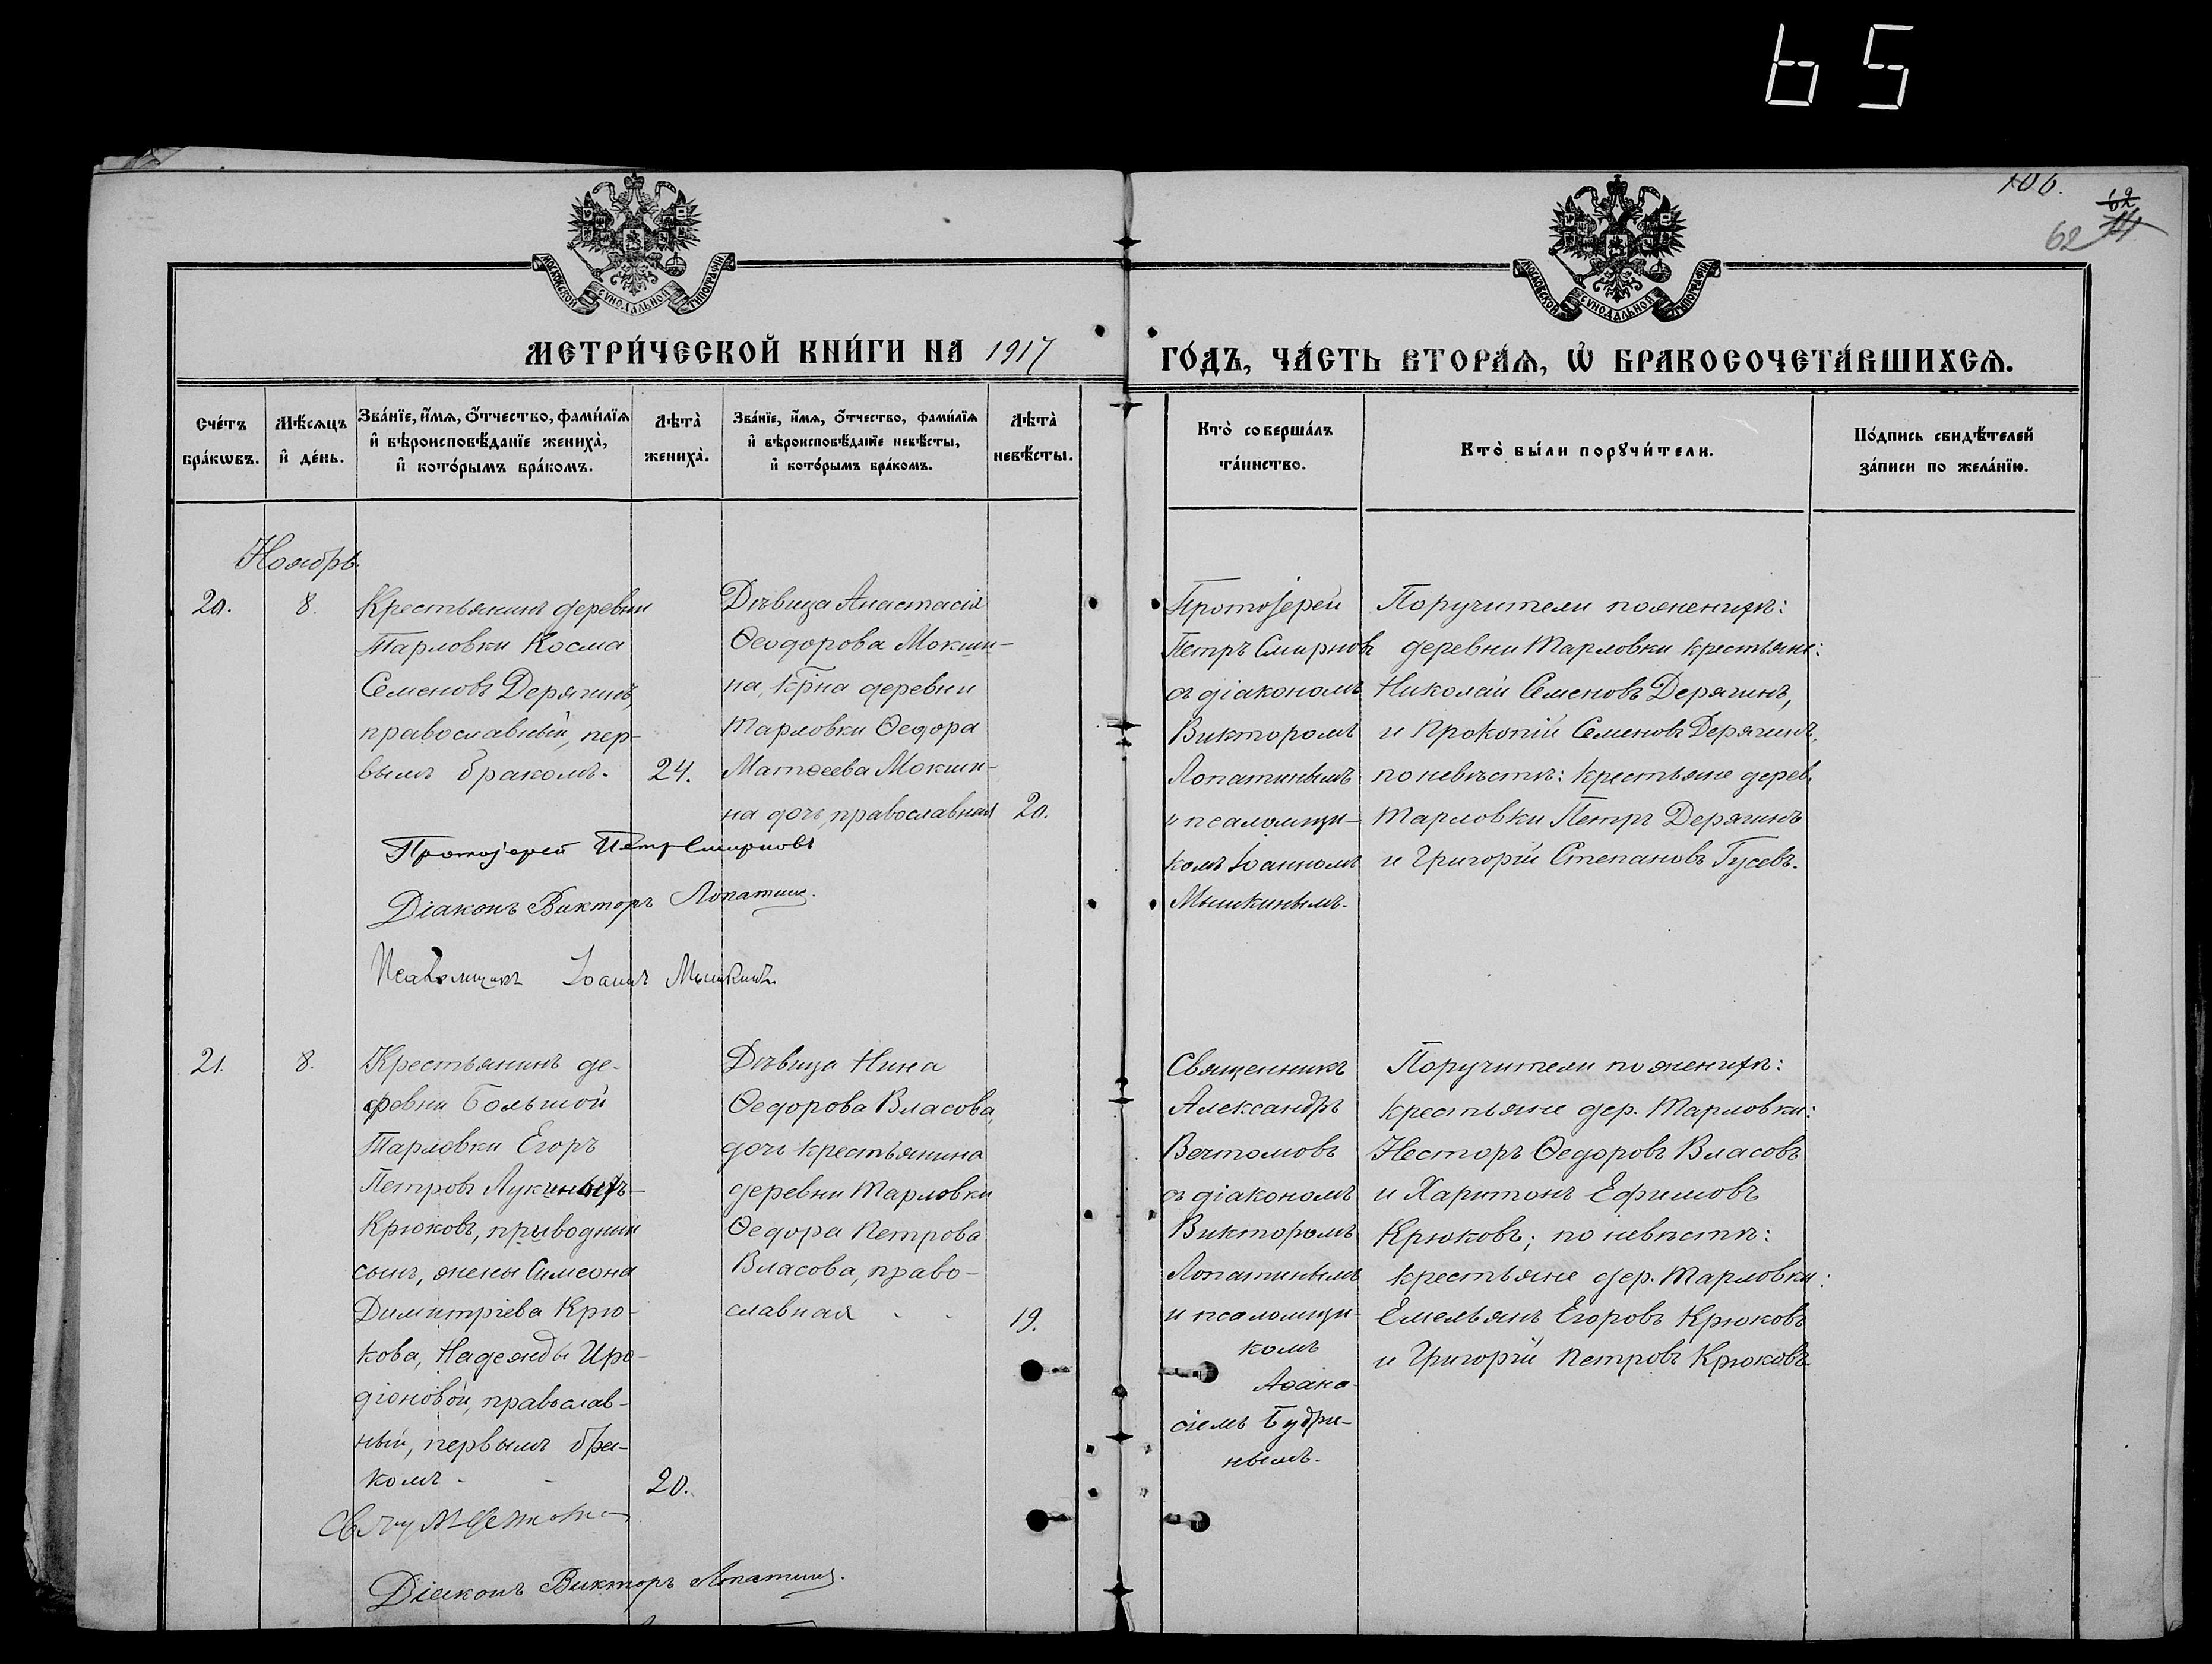 65
106.
62
62
МОСКОВСКОЙ СѴНОДАЛЬНОЙ ТИПОГРАФІИ
МОСКОВСКОЙ СѴНОДАЛЬНОЙ ТИПОГРАФІИ
МЕТРИ́ЧЕСКОЙ КНИ́ГИ НА 1917
ГО́ДЪ, ЧА́СТЬ ВТОРА́Ѧ, Ѡ҆ БРАКОСОЧЕТА́ВШИХСѦ.
Сче́тъ
бра́кѡвъ.
Мѣ́сѧцъ
и҆ де́нь.
Зва́нїе, и҆́мѧ, ѻ҆́тчество, фами́лїѧ
и҆ вѣроисповѣ́данїе жениха̀,
и҆ кото́рымъ бра́комъ.
Лѣта̀
жениха̀.
Зва́нїе, и҆́мѧ, ѻ҆́тчество, фами́лїѧ
и҆ вѣроисповѣ́данїе невѣ́сты,
и҆ кото́рымъ бра́комъ.
Лѣта̀
невѣ́сты.
Кто̀ соверша́лъ
та́инство.
Кто̀ бы́ли порꙋчи́тели.
По́дпись свидѣ́телей
за́писи по жела́нїю.
Ноябрь.
20.
8.
Крестьянинъ деревни
Тарловки Косма
Семеновъ Дерягинъ,
православный, пер-
вымъ бракомъ.
24.
Дѣвица Анастасія
Ѳеодорова Мокши-
на, кр̃на деревни
Тарловки Ѳедора
Матѳеева Мокши-
на дочь, православная
20.
Протоіерей
Петръ Смирновъ
съ діакономъ
Викторомъ
Лопатинымъ
и псаломщи-
комъ Іоанномъ
Мышкинымъ.
Поручители по женихѣ:
деревни Тарловки крестьяне:
Николай Семеновъ Дерягинъ,
и Прокопій Семеновъ Дерягинъ,
по невѣстѣ: крестьяне дерев.
Тарловки Петръ Дерягинъ
и Григорій Степановъ Гусевъ.
Протоіерей Петръ Смирновъ
Діаконъ Викторъ Лопатинъ.
Псаломщикъ Іоаннъ Мышкинъ
21.
8.
Крестьянинъ де-
ревни Большой
Тарловки Егоръ
Петровъ Лукиныхъ-
Крюковъ, приводный
сынъ, жены Симеона
Димитріева Крю-
кова, Надежды Иро-
діоновой, православ-
ный, первымъ бра-
комъ - -
20.
Дѣвица Нина
Ѳедорова Власова,
дочь крестьянина
деревни Тарловки
Ѳедора Петрова
Власова, право-
славная - -
19.
Священникъ
Александръ
Вечтомовъ
съ діакономъ
Викторомъ
Лопатинымъ
и псаломщи-
комъ
Аѳана-
сіемъ Будри-
нымъ.
Поручители по женихѣ:
крестьяне дер. Тарловки:
Несторъ Ѳедоровъ Власовъ
и Харитонъ Ефимовъ
Крюковъ; по невѣстѣ:
крестьяне дер. Тарловки:
Емельянъ Егоровъ Крюковъ
и Григорій Петровъ Крюковъ.
Діаконъ Викторъ Лопатинъ.